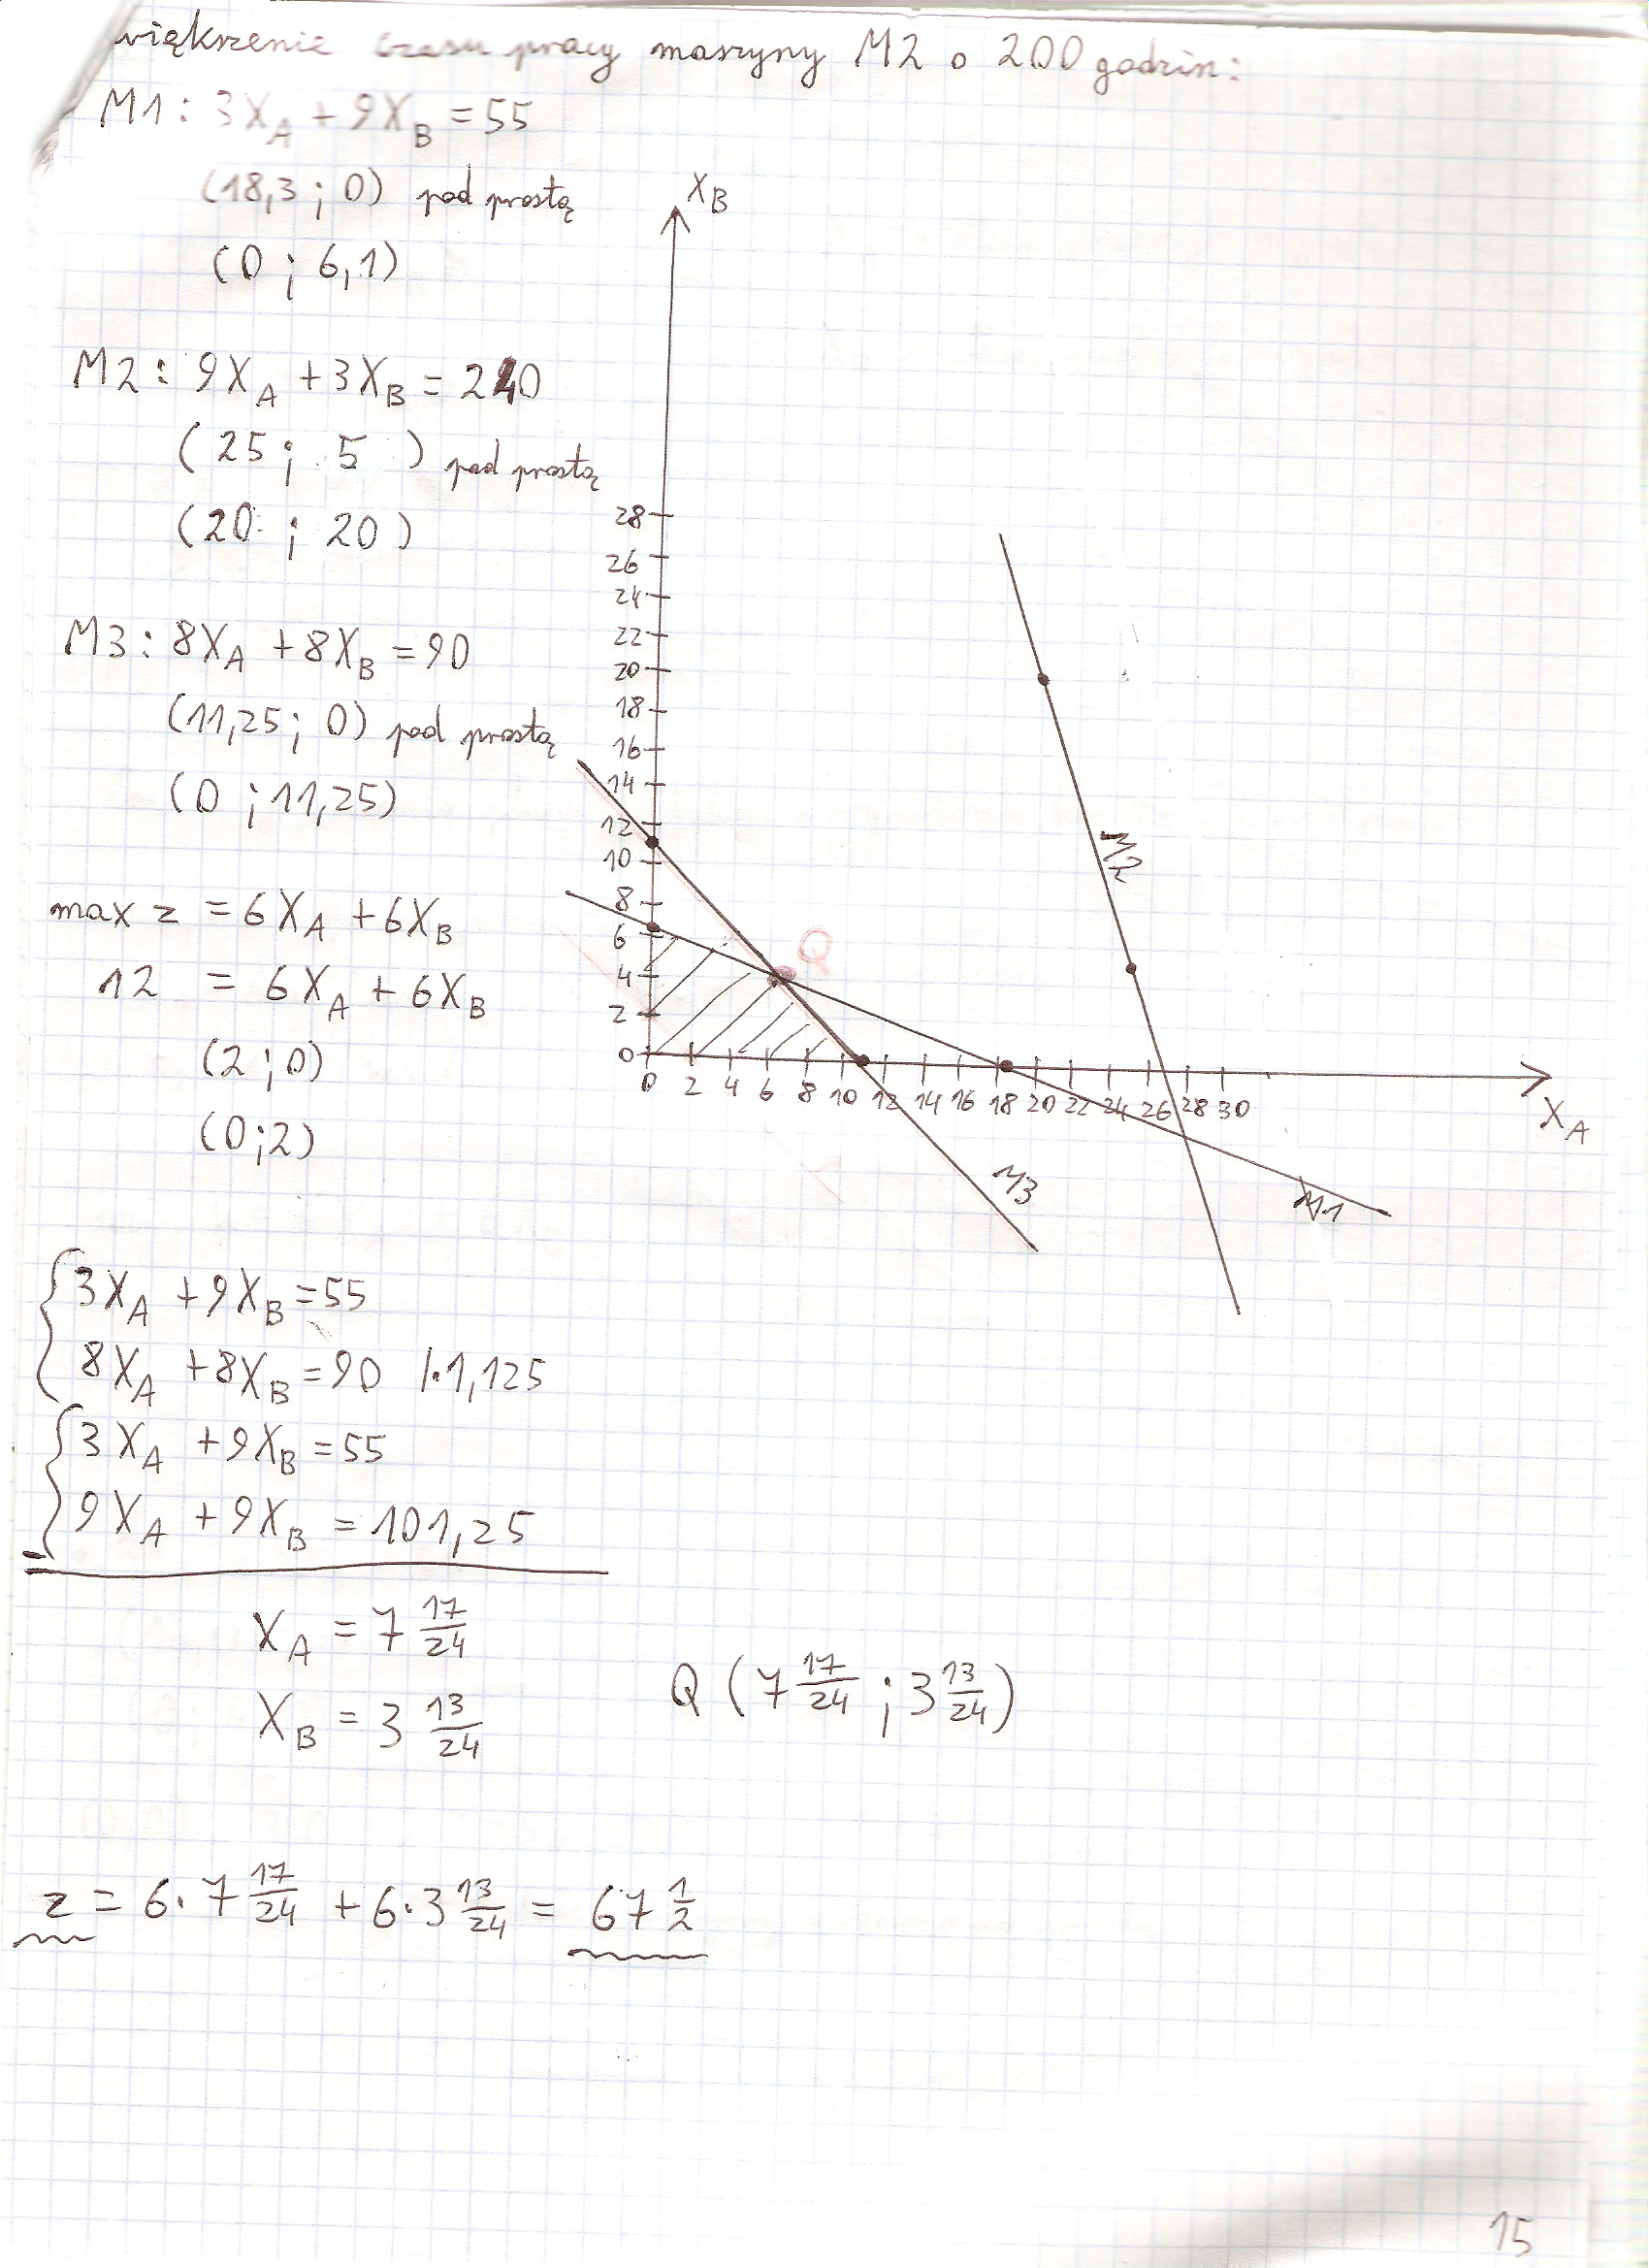 większenie czasu pracy maszyny M2 o 200 godzin:
M1: 3X_A + 9X_B = 55
(18,3 ; 0) pod prostą
(0 ; 6,1)
M2: 9X_A + 3X_B = 240
(25 ; 5) pod prostą
(20 ; 20)
M3: 8X_A + 8X_B = 90
(11,25 ; 0) pod prostą
(0 ; 11,25)
max z = 6X_A + 6X_B
12 = 6X_A + 6X_B
(2 ; 0)
(0 ; 2)
X_B
28
26
24
22
20
18
16
14
12
10
8
6
4
2
0
0 2 4 6 8 10 12 14 16 18 20 22 24 26 28 30
X_A
Q
M2
M3
M1
3X_A + 9X_B = 55
8X_A + 8X_B = 90 /·1,125
3X_A + 9X_B = 55
9X_A + 9X_B = 101,25
X_A = 7 17/24
X_B = 3 13/24
Q (7 17/24 ; 3 13/24)
z = 6·7 17/24 + 6·3 13/24 = 67 1/2
15